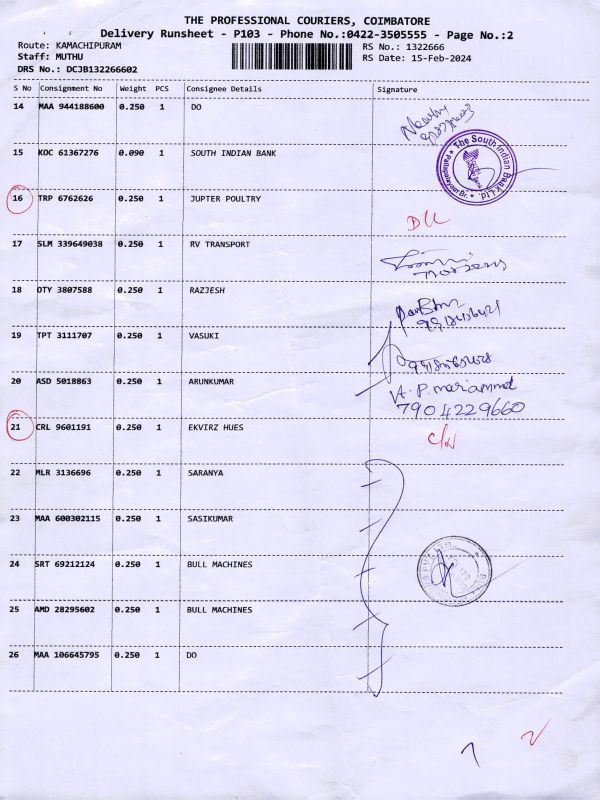 THE PROFESSIONAL COURIERS, COIMBATORE
Delivery Runsheet - P103 - Phone No.:0422-3505555 - Page No.:2
Route: KAMACHIPURAM RS No.: 1322666
Staff: MUTHU RS Date: 15-Feb-2024
DRS No.: DCJB132266602
S No Consignment No Weight PCS Consignee Details Signature
14 MAA 944188600 0.250 1 DO
15 KOC 61367276 0.090 1 SOUTH INDIAN BANK
The South Indian Bank Ltd.
16 TRP 6762626 0.250 1 JUPTER POULTRY
17 SLM 339649038 0.250 1 RV TRANSPORT
18 OTY 3807588 0.250 1 RAZJESH
19 TPT 3111707 0.250 1 VASUKI
20 ASD 5018863 0.250 1 ARUNKUMAR
7904229660
21 CRL 9601191 0.250 1 EKVIRZ HUES
22 MLR 3136696 0.250 1 SARANYA
23 MAA 600302115 0.250 1 SASIKUMAR
24 SRT 69212124 0.250 1 BULL MACHINES
25 AMD 28295602 0.250 1 BULL MACHINES
26 MAA 106645795 0.250 1 DO